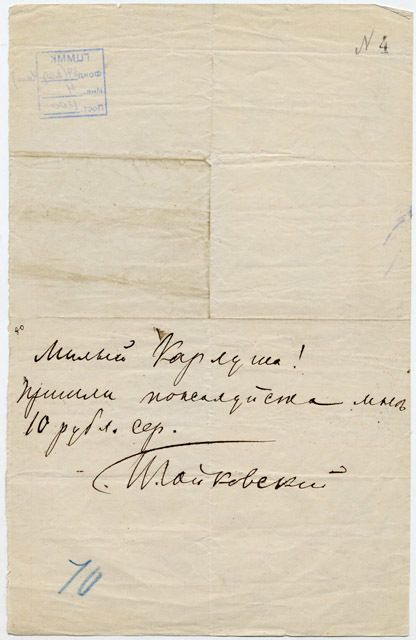 N 4
ГЦММК
Фонд
Инв. 4
Пост.
40
Милый Карлуша!
пришли пожалуйста мнѣ
10 рубл. сер.
П. Чайковский
10